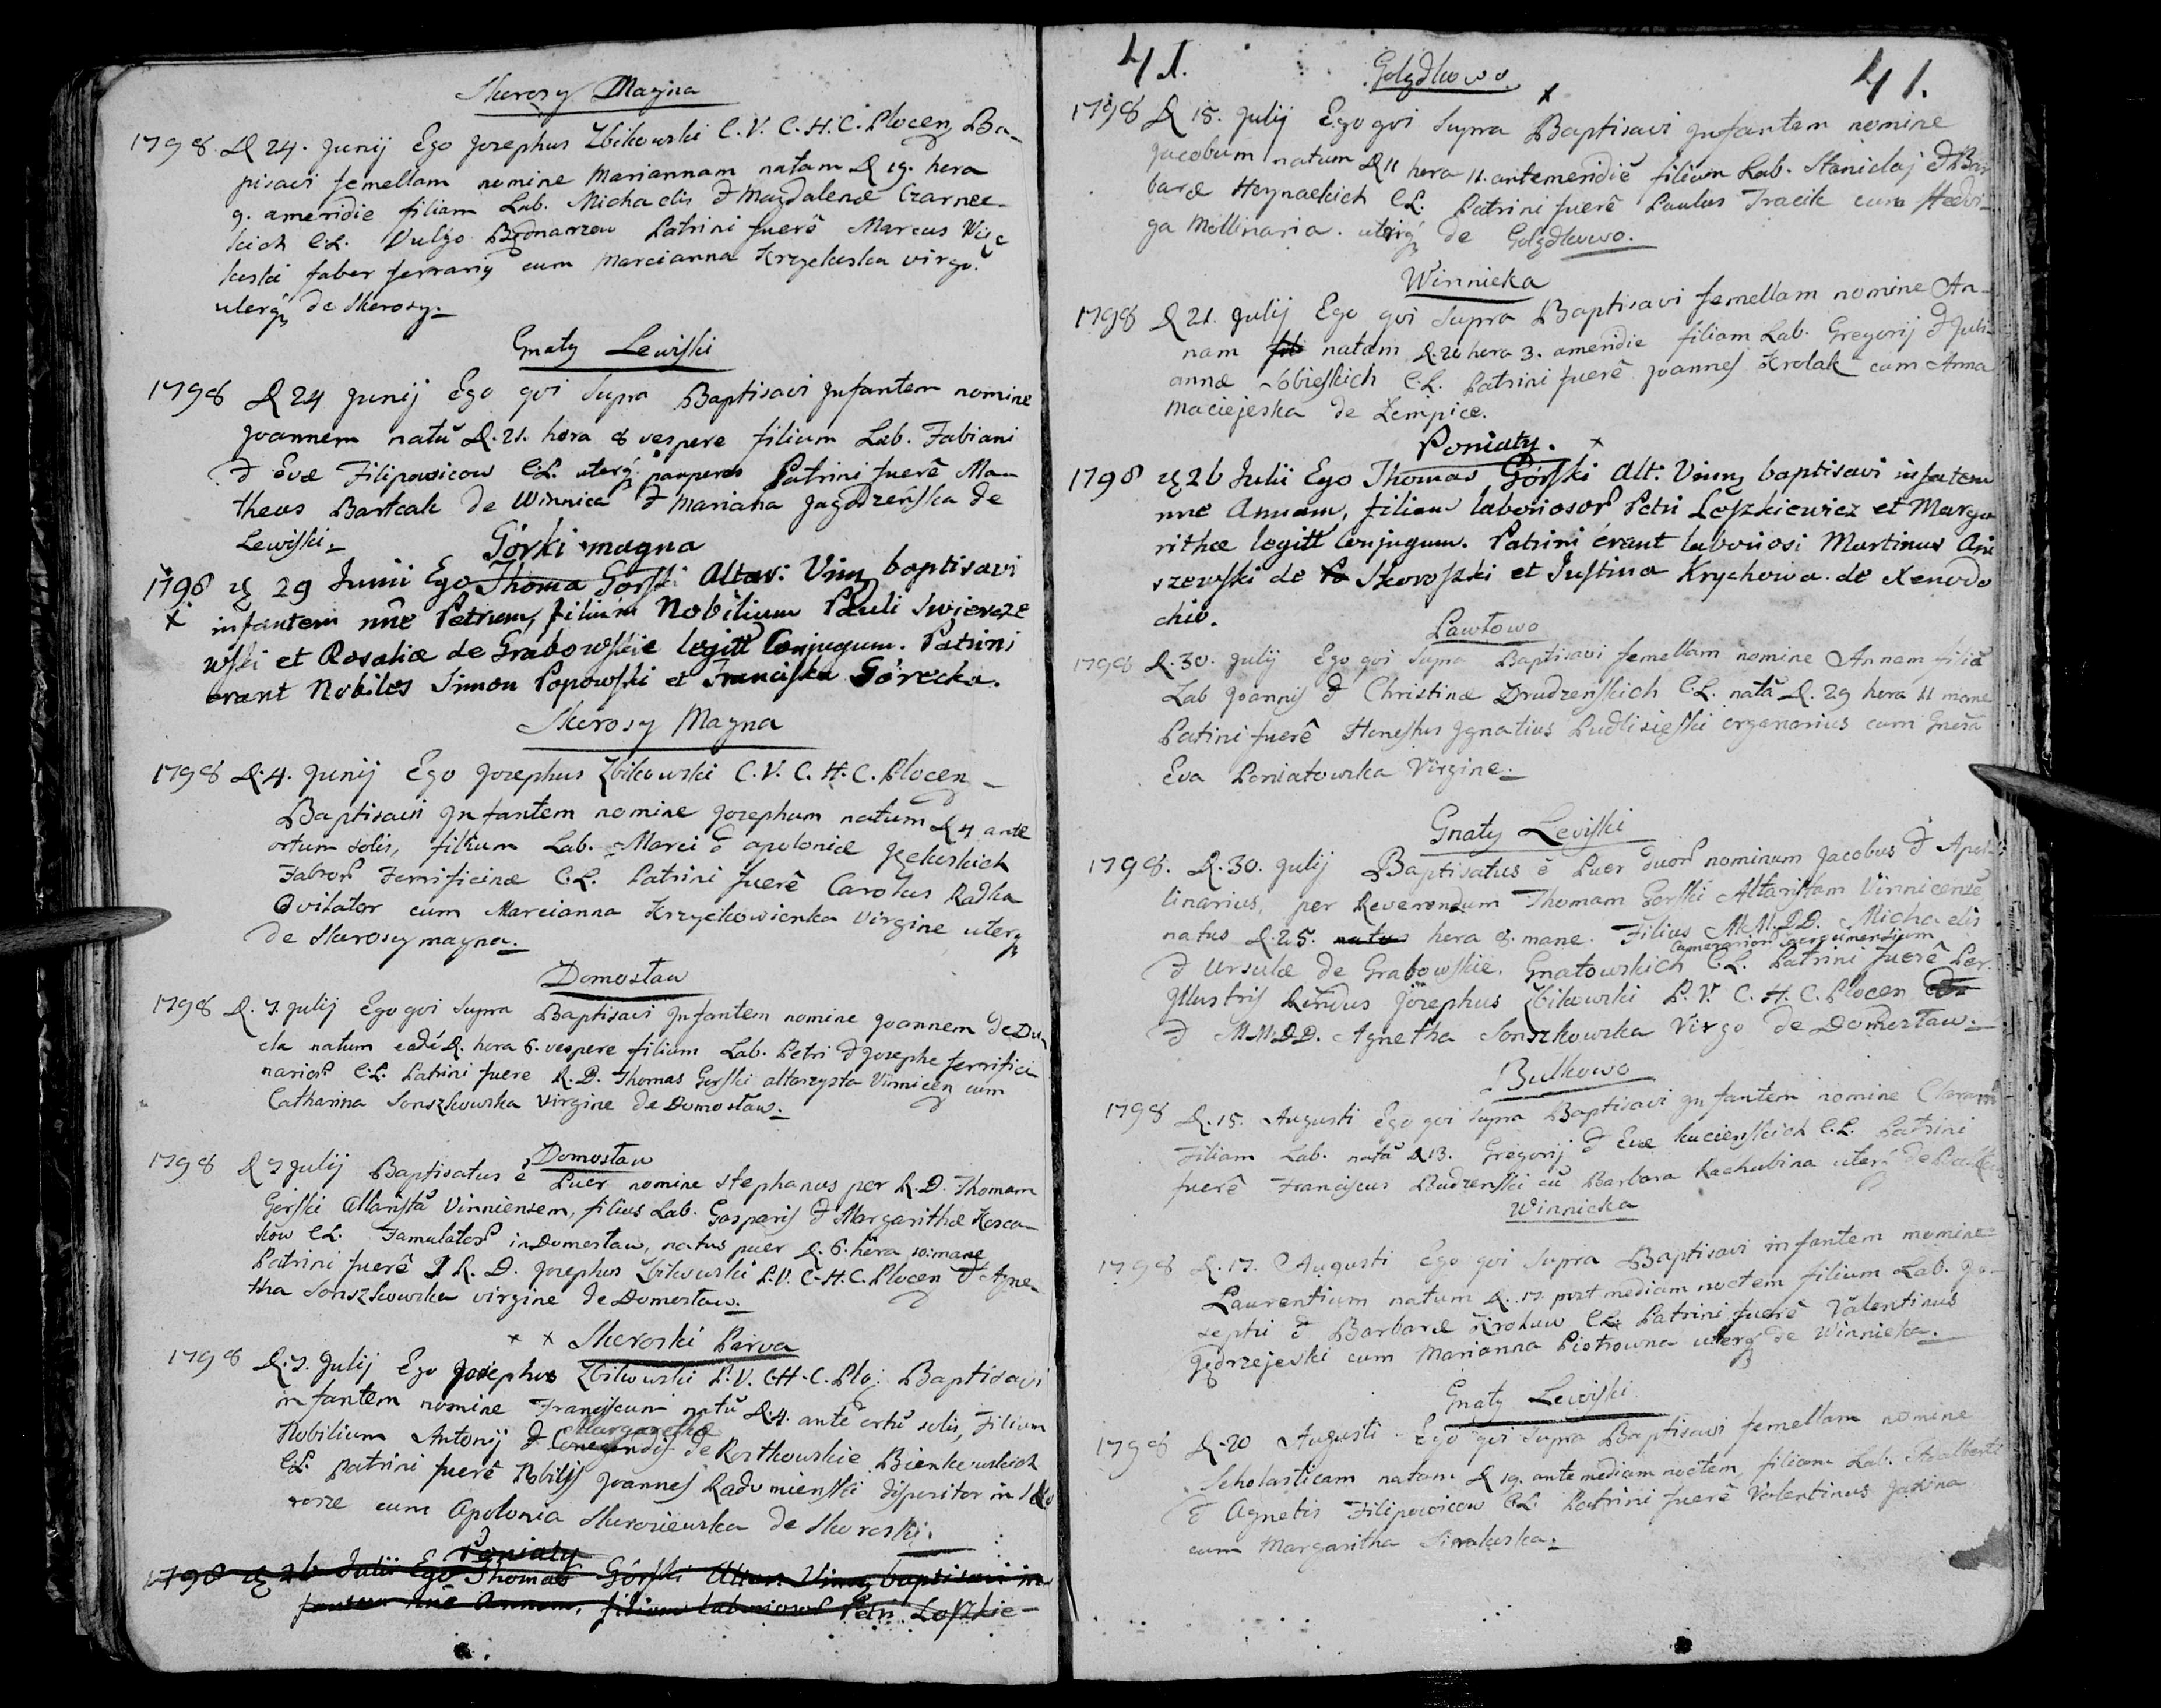 Skorosy Magna
1798. D. 24. Junij Ego Josephus Zbikowski C. V. C. H. C. Plocen Ba-
ptisavi femellam nomine Mariannam natam D 19. hora
9. ameridie filiam Lab. Michaelis & Magdalenæ Czarnec-
kich C.L. Vulgo Bednarzow Patrini fuerê Marcus
faber ferrarij cum Marcianna Krzyckoska virgo.
uterq de Skorosy.
Gnaty Lewiski
1798 D 24 Junij Ego qvi Supra Baptisavi Jnfantem nomine
Joannem natû D. 21. hora 8 vespere filium Lab. Fabiani
& Evæ Filipowicow C.L. uterq pauperes Patrini fuerê Ma-
theus Bartcak de Winnica & Mariana Jagodzeńska de
Lewiski.
Górki magna
1798 D 29 Junii Ego Thoma Gorski Altar: Vinn baptisavi
infantem nñe Petrum, filium Nobilium Pauli Swiercze
wski et Rosaliæ de Grabowskie legitt Conjugum. Patrini
erant Nobiles Simon Popowski et Franciska Górecka.
Skorosy Magna
1798 D. 4. Junij Ego Josephus Zbikowski C. V. C. H. C. Plocen
Baptisavi Jnfantem nomine Josephum natum D 4 ante
ortum solis, filium Lab. Marci & apoloniæ
Fabror Ferrificinæ C.L. Patrini fuerê Carolus Radka
Ovilator cum Marcianna Krzyckowienka Virgine uterq
de Skorosy magna.
Domosław
1798 D. 7. Julij Ego qvi Supra Baptisavi Jnfantem nomine Joannem de Du-
cla natum eadê D. hora 6. vespere filium Lab. Petri & Josephe ferrifici-
narior C.L. Patrini fuere R. D. Thomas Gorski altarzysta Vinnicen cum
Catharina Sonszkowska Virgine de Domosław.
Domosław
1798 D 7 Julij Baptisatus ê Puer nomine Stephanus per R. D. Thomam
Gorski Altaristâ Vinniensem, filius Lab. Gasparis & Margarithæ Kosca-
kow C.L. Famulator in Domosław, natus puer D. 6. hora 10. mane
Patrini fuerê P. R. D. Josephus Zbikowski P. V. C. H. C. Plocen & Agne-
tha Sonszkowska virgine de Domosław.
x x Skoroski Parva
1798 D. 7. Julij Ego Josephus Zbikowski P. V. C. H. C. Plo: Baptisavi
infantem nomine Franciscum natû D. 4. ante ortû solis, Filium
Margarethæ
Nobilium Antonij & Conegundis de Rostkowskie Bienkowskich
C.L. Patrini fuerê Nobilis Joannes Radomienski dispositor in Sko
rosze cum Apolonia Skorosiewska de Skoroski.
Poniaty
1798 D 26 Julii Ego Thomas Górski Altar Vinn baptisavi in
fantem nñe Annam, filiam laboriosor Petri Loszkie-
41.
41.
Golędkowo
1798 D 15. Julij Ego qvi Supra Baptisavi Jnfantem nomine
Jacobum natum D 11 hora 11. antemeridiê filium Lab. Stanislaj & Bar
baræ Hoynackich C.L. Patrini fuerê Paulus Tracik cum Hedvi-
ga Mollinaria. uterq de Golędkowo.
Winnicka
1798 D 21. Julij Ego qvi Supra Baptisavi femellam nomine An-
nam fili natam D. 20 hora 3. ameridie filiam Lab. Gregorij & Juli-
annæ Sobieskich C.L. Patrini fuerê Joannes Krolak cum Anna
Maciejeska de Lempice.
Poniaty. x
1798 D 26 Julii Ego Thomas Górski Alt: Vinn baptisavi infantem
nne Annam, filiam laboriosor Petri Loszkiewicz et Marga
rithæ legitt Conjugum. Patrini érant laboriosi Martinus
szewski de Po Skoroszki et Justina Krychowa de Xenodo
chio.
Pawłowo
1798 D. 30. Julij Ego qvi Supra Baptisavi femellam nomine Annam filiâ
Lab Joannis & Christinæ Drudzenskich C.L. natâ D. 29 hora 11 mane
Patrini fuerê Honestus Jgnatius Pudlisieski organarius cum Gnesâ
Eva Poniatowska Virgine.
Gnaty Leviski
1798. D. 30. Julij Baptisatus ê Puer duor nominum Jacobus & Apol-
linarius, per Reverendum Thomam Gorski Altaristam Vinnicensê
natus D. 25. natus hora 8. mane. Filius M.M.D.D. Michaelis
& Ursulæ de Grabowskie. Gnatowskich C.L. Patrini fuerê Per.
Jllustris Rñdus Josephus Zbikowski P. V. C. H. C. Plocen &
& M.M.D.D. Agnetha Sonszkowska Virgo de Domosław.
Bulkowo
1798 D. 15. Augusti Ego qvi Supra Baptisavi Jnfantem nomine Claram
Filiam Lab. natâ D 13. Gregorij & Evæ Kucienskich C.L. Patrini
fuerê Franciscus Budzenski cû Barbara Kachubina uterq de
Winnicka
1798 D. 17. Augusti Ego qvi Supra Baptisavi infantem nomine
Laurentium natum D. 17. post mediam noctem filium Lab. Jo-
sephi & Barbaræ Krokuw C.L. Patrini fuerê Valentinus
Jędrzejeski cum Marianna Piotrowna uterq de Winnicka.
Gnaty Lewiski
1798 D. 20 Augusti Ego qvi Supra Baptisavi femellam nomine
Scholasticam natam D 19. ante mediam noctem, filiam Lab. Adalberti
& Agnetis Filipowicow C.L. Patrini fuerê Valentinus
cum Margaritha